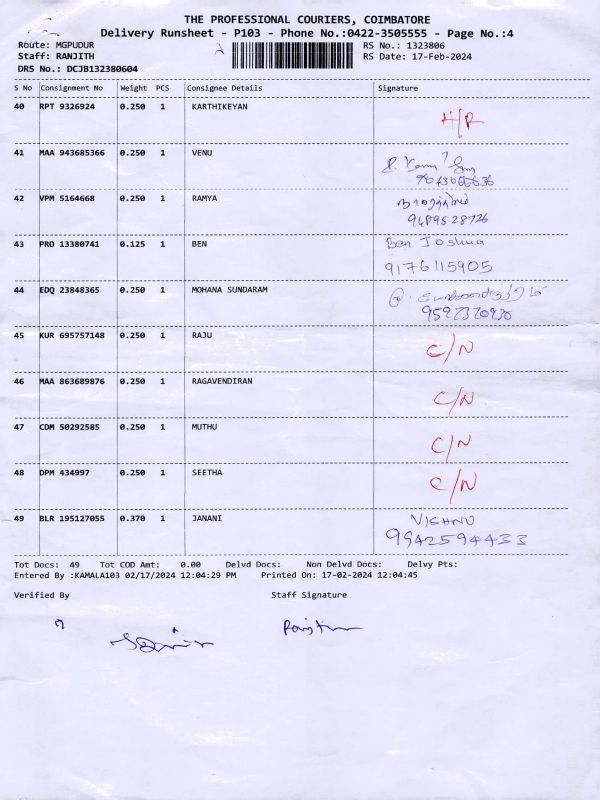 THE PROFESSIONAL COURIERS, COIMBATORE
Delivery Runsheet - P103 - Phone No.:0422-3505555 - Page No.:4
Route: MGPUDUR RS No.: 1323806
Staff: RANJITH RS Date: 17-Feb-2024
DRS No.: DCJB132380604
S No Consignment No Weight PCS Consignee Details Signature
40 RPT 9326924 0.250 1 KARTHIKEYAN H/R
41 MAA 943685366 0.250 1 VENU
42 VPM 5164668 0.250 1 RAMYA
9489528726
43 PRO 13380741 0.125 1 BEN Ben Joshua
9176115905
44 EDQ 23848365 0.250 1 MOHANA SUNDARAM
45 KUR 695757148 0.250 1 RAJU C/N
46 MAA 863689876 0.250 1 RAGAVENDIRAN C/N
47 CDM 50292585 0.250 1 MUTHU C/N
48 DPM 434997 0.250 1 SEETHA C/N
49 BLR 195127055 0.370 1 JANANI VISHNU
9942594433
Tot Docs: 49 Tot COD Amt: 0.00 Delvd Docs: Non Delvd Docs: Delvy Pts:
Entered By :KAMALA103 02/17/2024 12:04:29 PM Printed On: 17-02-2024 12:04:45
Verified By Staff Signature